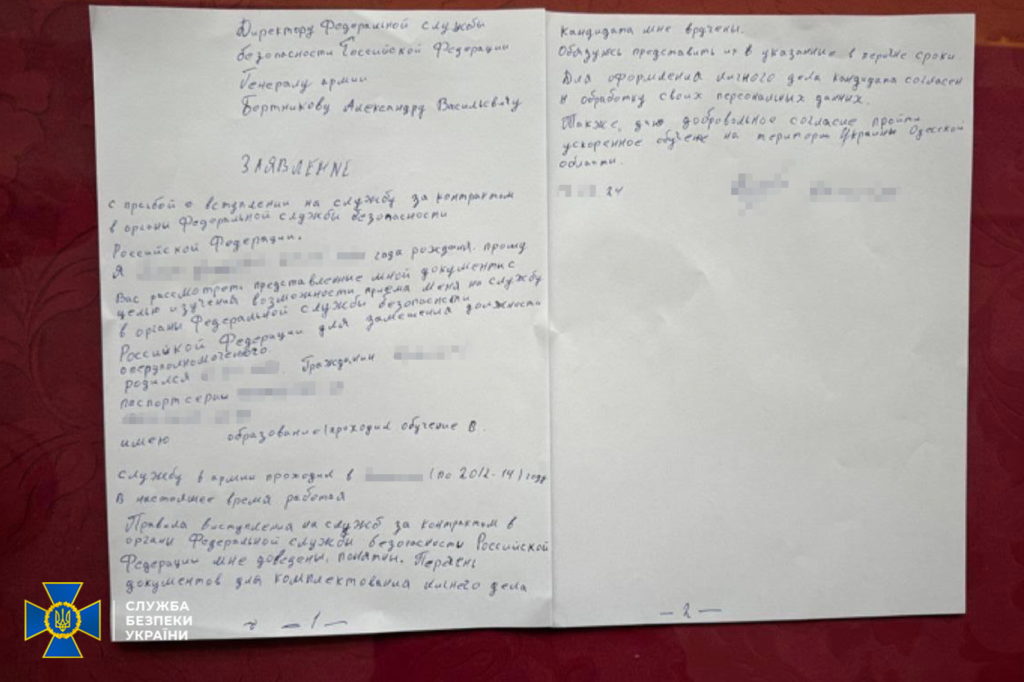 Директору Федеральной службы
безопасности Российской Федерации
Генералу армии
Бортникову Александру Васильевичу
ЗАЯВЛЕНИЕ
с прозбой о вступлении на службу за контрактом
в органы Федеральной службы безопасности
Российской Федерации.
Я года рождения. прошу
Вас рассмотреть представленные мной документы с
целью изучения возможности приема меня на службу
в органы Федеральной службы безопасности
Российкой Федерации для замещения должности
оперуполномоченого
родился Гражданин
паспорт серии
имею образование проходил обучение в.
службу в армии проходил в (по 2012-14) году
В настоящее время работая
Правила виступления на служб за контрактом в
органы Федеральной службы безопасность Российской
Федерации мне доведены, понятны. Перечнь
документов для комплектования личного дела
— 1 —
кандидата мне вручены.
Обязуюсь представить их в указанные в перечне сроки
Для оформления личного дела кандидата согласен
н обработку своих персональных данных.
Также, даю добровольное согласие пройти
ускоренное обучене на територт Украины Одесской
области.
24
— 2 —
СЛУЖБА
БЕЗПЕКИ
УКРАЇНИ